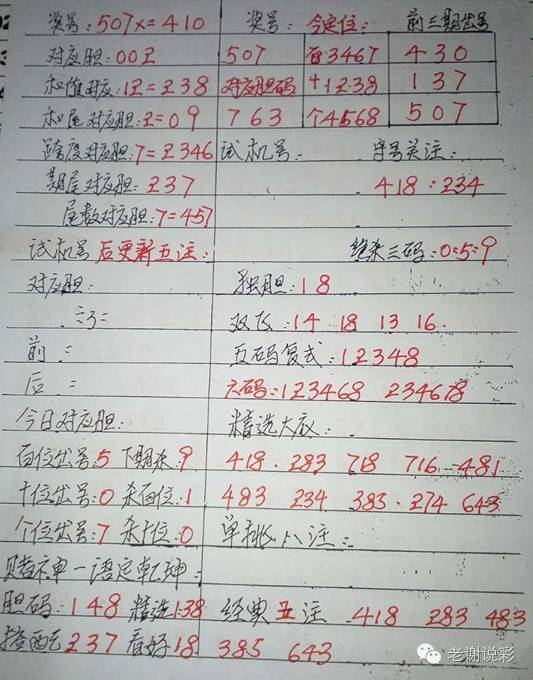 奖号:507x=410 奖号: 今定位: 前三期出号
对应胆:00 507 百3467 430
和值对应:12=238 对应胆码 十1238 137
和尾对应胆:2=09 763 个4568 507
跨度对应胆:7=2346 试机号: 守号关注:
期尾对应胆:237 418:234
尾数对应胆:7=457
试机号后更新五注: 绝杀三码:0:5:9
对应胆: 独胆:18
双飞:14 18 13 16
前: 五码复式:12348
后: 六码:123468 234678
今日对应胆: 精选大底:
百位出号:5 下期杀:9 418. 283 718 716 481
十位出号:0 杀百位:1 483 234 383. 274 643
个位出号:7 杀十位:0 单挑八注:
赌神一语定乾坤:
胆码:148 精选138 经典五注 418 283 483
搭配237 看好18 385 643
老谢说彩